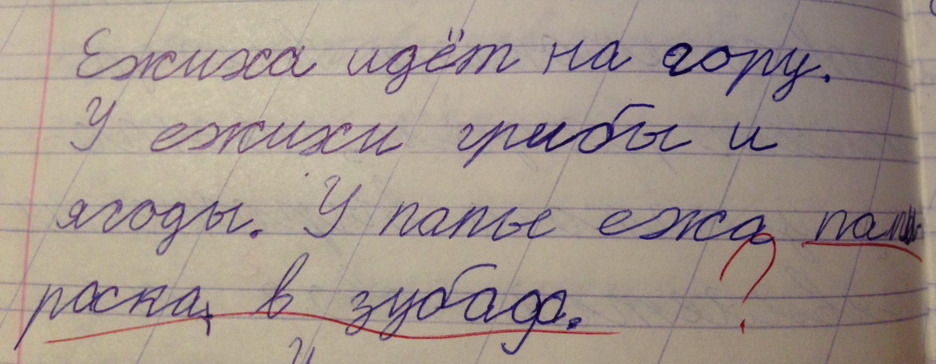 Ежиха идёт на гору.
У ежихи грибы и
ягоды. У папы ежа папи-
раска в зубаф. ?